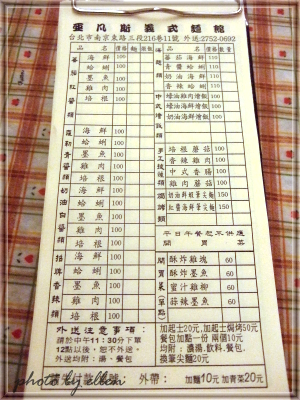 亞凡斯義式麵館
台北市南京東路三段216巷11號 外送:2752-0692
品名 價格 數量
蕃茄紅醬類
海鮮 100
蛤蜊 100
墨魚 100
雞肉 100
培根 100
羅勒青醬類
海鮮 100
蛤蜊 100
墨魚 100
雞肉 100
培根 100
奶油白醬類
海鮮 100
蛤蜊 100
墨魚 100
雞肉 100
培根 100
招牌香辣類
海鮮 100
蛤蜊 100
墨魚 100
雞肉 100
培根 100
品名 價格 數量
蕃茄海鮮 110
青醬蛤蜊 110
奶油海鮮 110
香辣蛤蜊 110
蠔油雞肉燴飯 100
蠔油海鮮燴飯 100
奶油海鮮燴飯 100
培根蘑菇 100
香辣雞肉 100
中式香腸 100
雞肉蘑菇 100
奶油海鮮筆尖麵 150
紅醬海鮮筆尖麵 150
平日午餐恕不供應
開胃菜
開胃菜(單點)
酥炸雞塊 60
酥炸墨魚
蜜汁雞柳 60
蒜辣墨魚
外送注意事項:
請於中午11:30分下單
12點以後,恕不外送。
外送均附:湯、餐包
加起士20元,加起士焗烤50元
餐包加點一份 兩個10元
均附:濃湯.飲料.餐包.
換筆尖麵20元
外帶: 加麵10元 加青菜20元
photo by ellen